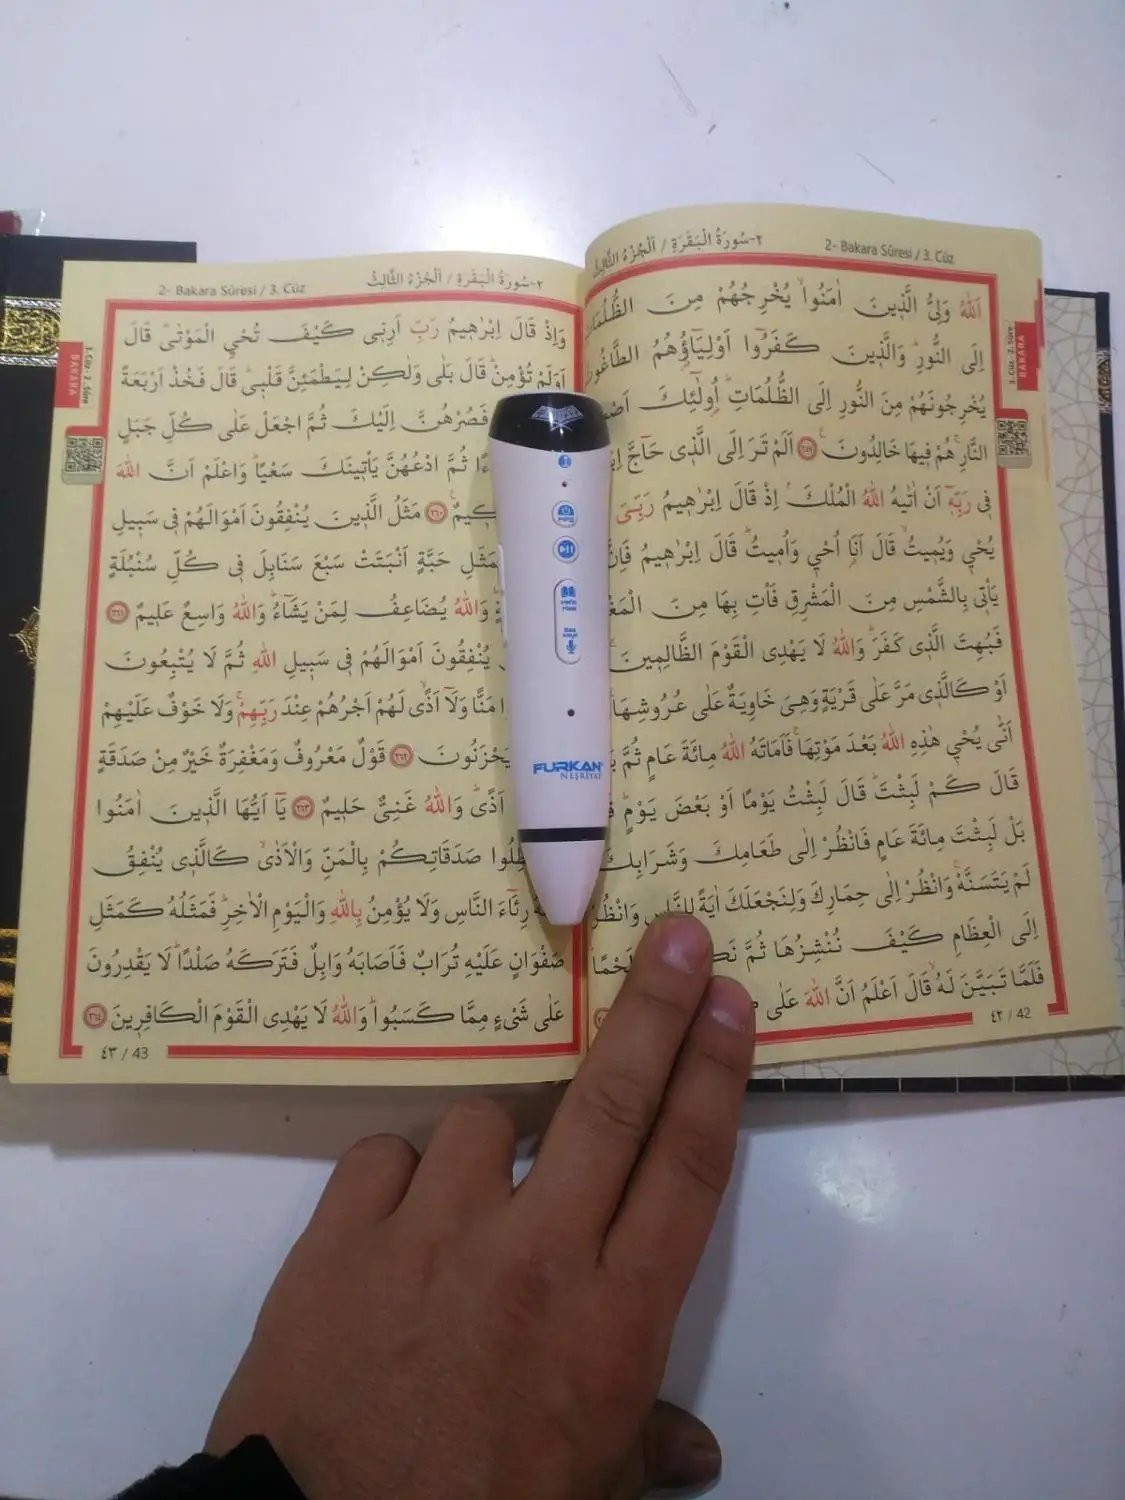 ٢-سُورَةُ الْبَقَرَةِ / اَلْجُزْءُ الثَّالِثُ
2- Bakara Sûresi / 3. Cüz
اَللّٰهُ وَلِيُّ الَّذ۪ينَ اٰمَنُواۙ يُخْرِجُهُمْ مِنَ
اِلَى النُّورِۜ وَالَّذ۪ينَ كَفَرُٓوا اَوْلِيَٓاؤُ۬هُمُ
يُخْرِجُونَهُمْ مِنَ النُّورِ اِلَى الظُّلُمَاتِۜ اُو۬لٰٓئِكَ
النَّارِۚ هُمْ ف۪يهَا خَالِدُونَ ۟﴿٢٥٧﴾ اَلَمْ تَرَ اِلَى الَّذ۪ي حَٓاجَّ
ف۪ي رَبِّه۪ٓ اَنْ اٰتٰيهُ اللّٰهُ الْمُلْكَۢ اِذْ قَالَ اِبْرٰه۪يمُ رَبِّيَ
يُحْي۪ وَيُم۪يتُۙ قَالَ اَنَا۬ اُحْي۪ وَاُم۪يتُۜ قَالَ اِبْرٰه۪يمُ
يَأْت۪ي بِالشَّمْسِ مِنَ الْمَشْرِقِ فَأْتِ بِهَا مِنَ
فَبُهِتَ الَّذ۪ي كَفَرَۜ وَاللّٰهُ لَا يَهْدِي الْقَوْمَ الظَّالِم۪ينَۚ
اَوْ كَالَّذ۪ي مَرَّ عَلٰى قَرْيَةٍ وَهِيَ خَاوِيَةٌ عَلٰى عُرُوشِهَاۚ
اَنّٰى يُحْي۪ هٰذِهِ اللّٰهُ بَعْدَ مَوْتِهَاۚ فَاَمَاتَهُ اللّٰهُ مِائَةَ عَامٍ ثُمَّ
قَالَ كَمْ لَبِثْتَۜ قَالَ لَبِثْتُ يَوْمًا اَوْ بَعْضَ يَوْمٍۜ
بَلْ لَبِثْتَ مِائَةَ عَامٍ فَانْظُرْ اِلٰى طَعَامِكَ وَشَرَابِكَ
لَمْ يَتَسَنَّهْۚ وَانْظُرْ اِلٰى حِمَارِكَ وَلِنَجْعَلَكَ اٰيَةً لِلنَّاسِ وَانْظُرْ
اِلَى الْعِظَامِ كَيْفَ نُنْشِزُهَا ثُمَّ لَحْمًاۜ
فَلَمَّا تَبَيَّنَ لَهُۙ قَالَ اَعْلَمُ اَنَّ اللّٰهَ عَلٰى
٤٢ / 42
2- Bakara Sûresi / 3. Cüz
٢-سُورَةُ الْبَقَرَةِ / اَلْجُزْءُ الثَّالِثُ
وَاِذْ قَالَ اِبْرٰه۪يمُ رَبِّ اَرِن۪ي كَيْفَ تُحْيِ الْمَوْتٰىۜ قَالَ
اَوَلَمْ تُؤْمِنْۜ قَالَ بَلٰى وَلٰكِنْ لِيَطْمَئِنَّ قَلْب۪يۜ قَالَ فَخُذْ اَرْبَعَةً
فَصُرْهُنَّ اِلَيْكَ ثُمَّ اجْعَلْ عَلٰى كُلِّ جَبَلٍ
ثُمَّ ادْعُهُنَّ يَأْت۪ينَكَ سَعْيًاۜ وَاعْلَمْ اَنَّ اللّٰهَ
﴿٢٦٠﴾ مَثَلُ الَّذ۪ينَ يُنْفِقُونَ اَمْوَالَهُمْ ف۪ي سَب۪يلِ
حَبَّةٍ اَنْبَتَتْ سَبْعَ سَنَابِلَ ف۪ي كُلِّ سُنْبُلَةٍ
وَاللّٰهُ يُضَاعِفُ لِمَنْ يَشَٓاءُۜ وَاللّٰهُ وَاسِعٌ عَل۪يمٌ ﴿٢٦١﴾
يُنْفِقُونَ اَمْوَالَهُمْ ف۪ي سَب۪يلِ اللّٰهِ ثُمَّ لَا يُتْبِعُونَ
مَنًّا وَلَٓا اَذًىۙ لَهُمْ اَجْرُهُمْ عِنْدَ رَبِّهِمْۚ وَلَا خَوْفٌ عَلَيْهِمْ
يَحْزَنُونَ ﴿٢٦٢﴾ قَوْلٌ مَعْرُوفٌ وَمَغْفِرَةٌ خَيْرٌ مِنْ صَدَقَةٍ
اَذًىۜ وَاللّٰهُ غَنِيٌّ حَل۪يمٌ ﴿٢٦٣﴾ يَٓا اَيُّهَا الَّذ۪ينَ اٰمَنُوا
صَدَقَاتِكُمْ بِالْمَنِّ وَالْاَذٰىۙ كَالَّذ۪ي يُنْفِقُ
رِئَٓاءَ النَّاسِ وَلَا يُؤْمِنُ بِاللّٰهِ وَالْيَوْمِ الْاٰخِرِۜ فَمَثَلُهُ كَمَثَلِ
صَفْوَانٍ عَلَيْهِ تُرَابٌ فَاَصَابَهُ وَابِلٌ فَتَرَكَهُ صَلْدًاۜ لَا يَقْدِرُونَ
عَلٰى شَيْءٍ مِمَّا كَسَبُواۜ وَاللّٰهُ لَا يَهْدِي الْقَوْمَ الْكَافِر۪ينَ ﴿٢٦٤﴾
٤٣ / 43
BAKARA
3. Cüz - 2. Sûre
BAKARA
FURKAN
NEŞRİYAT